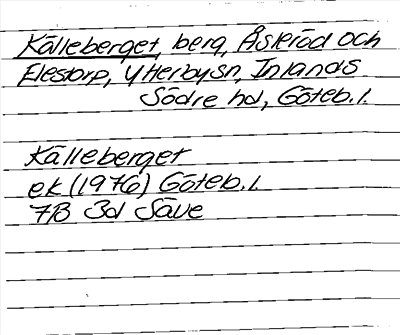 Källeberget, berg, Åseröd och
Elestorp, Ytterbysn, Inlands
Södre hd, Göteb.l.
Källeberget
ek (1976) Göteb.l.
7B 3d Säve